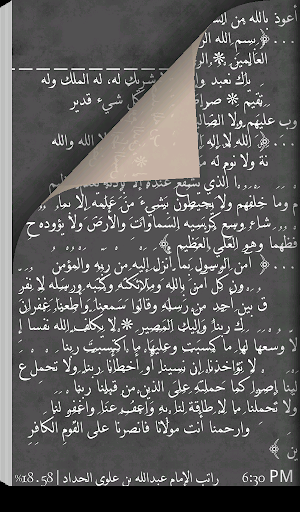 أعوذ بالله من
﴿ بِسْمِ اللهِ
الْعَالَمِينَ ❋
شريك له، له الملك وله
شيء قدير
إلا الله والله
﴿ اللهُ لَا إِلَهَ
نَةٌ وَلَا نَوْمٌ لَهُ
ذَا الَّذِي يَشْفَعُ عِنْدَهُ إِلَّا
مْ وَمَا خَلْفَهُمْ وَلَا يُحِيطُونَ بِشَيْءٍ مِنْ عِلْمِهِ إِلَّا بِمَا
شَاءَ وَسِعَ كُرْسِيُّهُ السَّمَاوَاتِ وَالْأَرْضَ وَلَا يَؤُودُهُ حِ
فْظُهُمَا وَهُوَ الْعَلِيُّ الْعَظِيمُ ﴾
﴿ آمَنَ الرَّسُولُ بِمَا أُنْزِلَ إِلَيْهِ مِنْ رَبِّهِ وَالْمُؤْمِنُ
ونَ كُلٌّ آمَنَ بِاللهِ وَمَلَائِكَتِهِ وَكُتُبِهِ وَرُسُلِهِ لَا نُفَرِّ
قُ بَيْنَ أَحَدٍ مِنْ رُسُلِهِ وَقَالُوا سَمِعْنَا وَأَطَعْنَا غُفْرَانَ
كَ رَبَّنَا وَإِلَيْكَ الْمَصِيرُ ❋ لَا يُكَلِّفُ اللهُ نَفْسًا إِ
لَّا وُسْعَهَا لَهَا مَا كَسَبَتْ وَعَلَيْهَا مَا اكْتَسَبَتْ رَبَّنَا
لَا تُؤَاخِذْنَا إِنْ نَسِينَا أَوْ أَخْطَأْنَا رَبَّنَا وَلَا تَحْمِلْ عَ
لَيْنَا إِصْرًا كَمَا حَمَلْتَهُ عَلَى الَّذِينَ مِنْ قَبْلِنَا رَبَّنَا
وَلَا تُحَمِّلْنَا مَا لَا طَاقَةَ لَنَا بِهِ وَاعْفُ عَنَّا وَاغْفِرْ لَنَا
وَارْحَمْنَا أَنْتَ مَوْلَانَا فَانْصُرْنَا عَلَى الْقَوْمِ الْكَافِرِ
ينَ ﴾
راتب الإمام عبدالله بن علوي الحداد | %18.58
6:30 PM